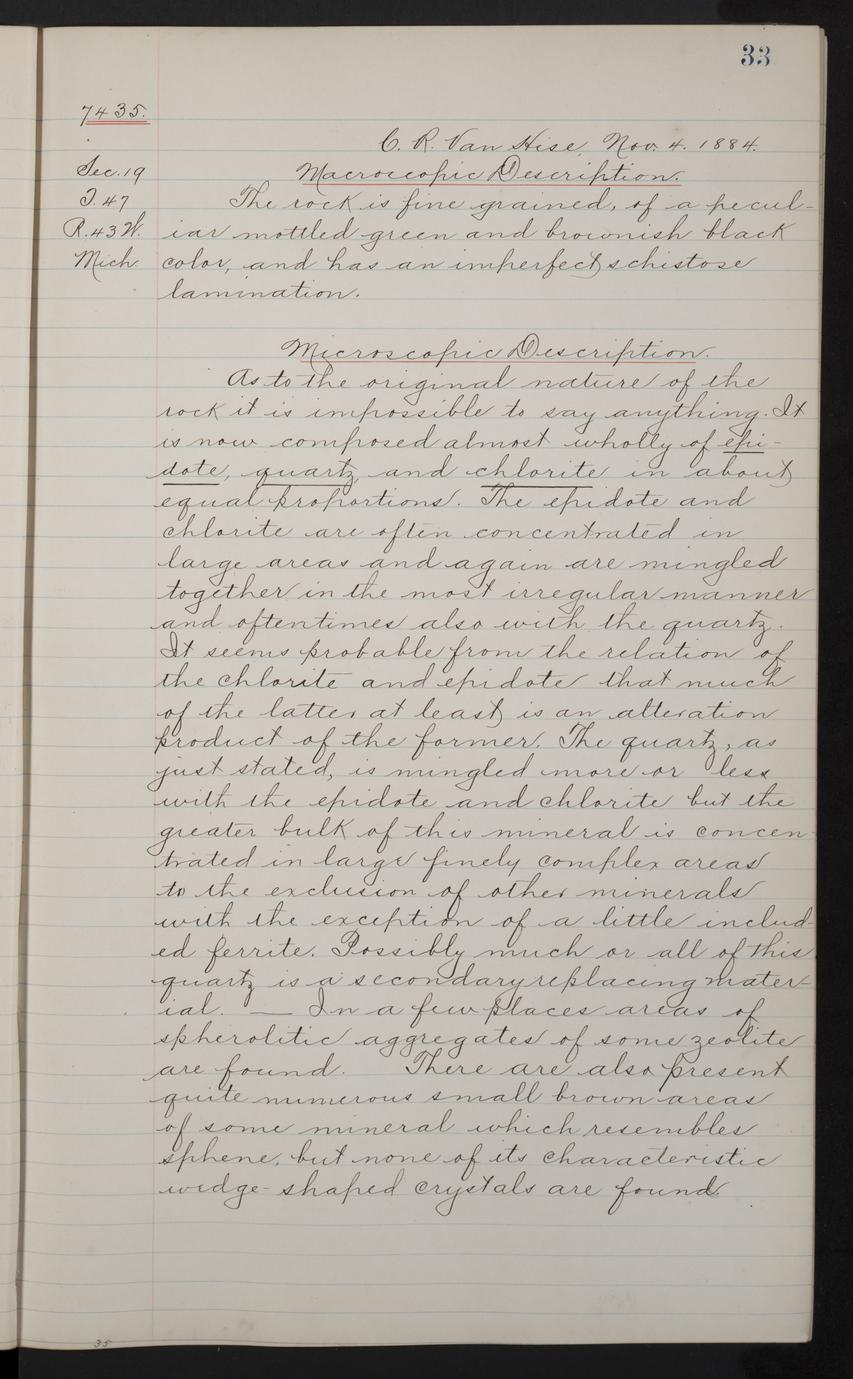 33
7435.
C. R. Van Hise, Nov. 4. 1884.
Sec. 19
Macroscopic Description.
T. 47
The rock is fine grained, of a pecul-
R. 43 W.
iar mottled green and brownish black
Mich.
color, and has an imperfect schistose
lamination.
Microscopic Description.
As to the original nature of the
rock it is impossible to say anything. It
is now composed almost wholly of epi-
dote, quartz, and chlorite in about
equal proportions. The epidote and
chlorite are often concentrated in
large areas and again are mingled
together in the most irregular manner
and oftentimes also with the quartz.
It seems probable from the relation of
the chlorite and epidote that much
of the latter at least is an alteration
product of the former. The quartz, as
just stated, is mingled more or less
with the epidote and chlorite but the
greater bulk of this mineral is concen-
trated in large finely complex areas
to the exclusion of other minerals
with the exception of a little includ-
ed ferrite. Possibly much or all of this
quartz is a secondary replacing mater-
ial. — In a few places areas of
spherolitic aggregates of some zeolite
are found. There are also present
quite numerous small brown areas
of some mineral which resembles
sphene, but none of its characteristic
wedge-shaped crystals are found.
35